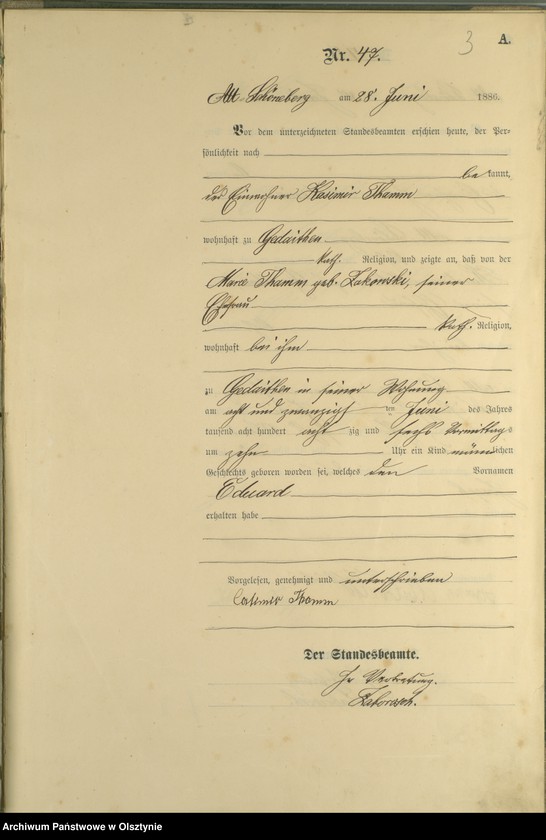 3 A.
Nr. 47.
Alt-Schöneberg am 28. Juni 1886.
Vor dem unterzeichneten Standesbeamten erschien heute, der Per-
sönlichkeit nach
be kannt,
der Einwohner Kasimir Thamm
wohnhaft zu Gedaithen
kath. Religion, und zeigte an, daß von der
Marie Thamm geb. Zakowski, seiner
Ehefrau
kath. Religion,
wohnhaft bei ihm
zu Gedaithen in seiner Wohnung
am acht und zwanzigsten Juni des Jahres
tausend acht hundert acht zig und sechs Vormittags
um zehn Uhr ein Kind männlichen
Geschlechts geboren worden sei, welches den Vornamen
Eduard
erhalten habe
Vorgelesen, genehmigt und unterschrieben
Casimir Thamm
Der Standesbeamte.
In Vertretung.
Archiwum Państwowe w Olsztynie